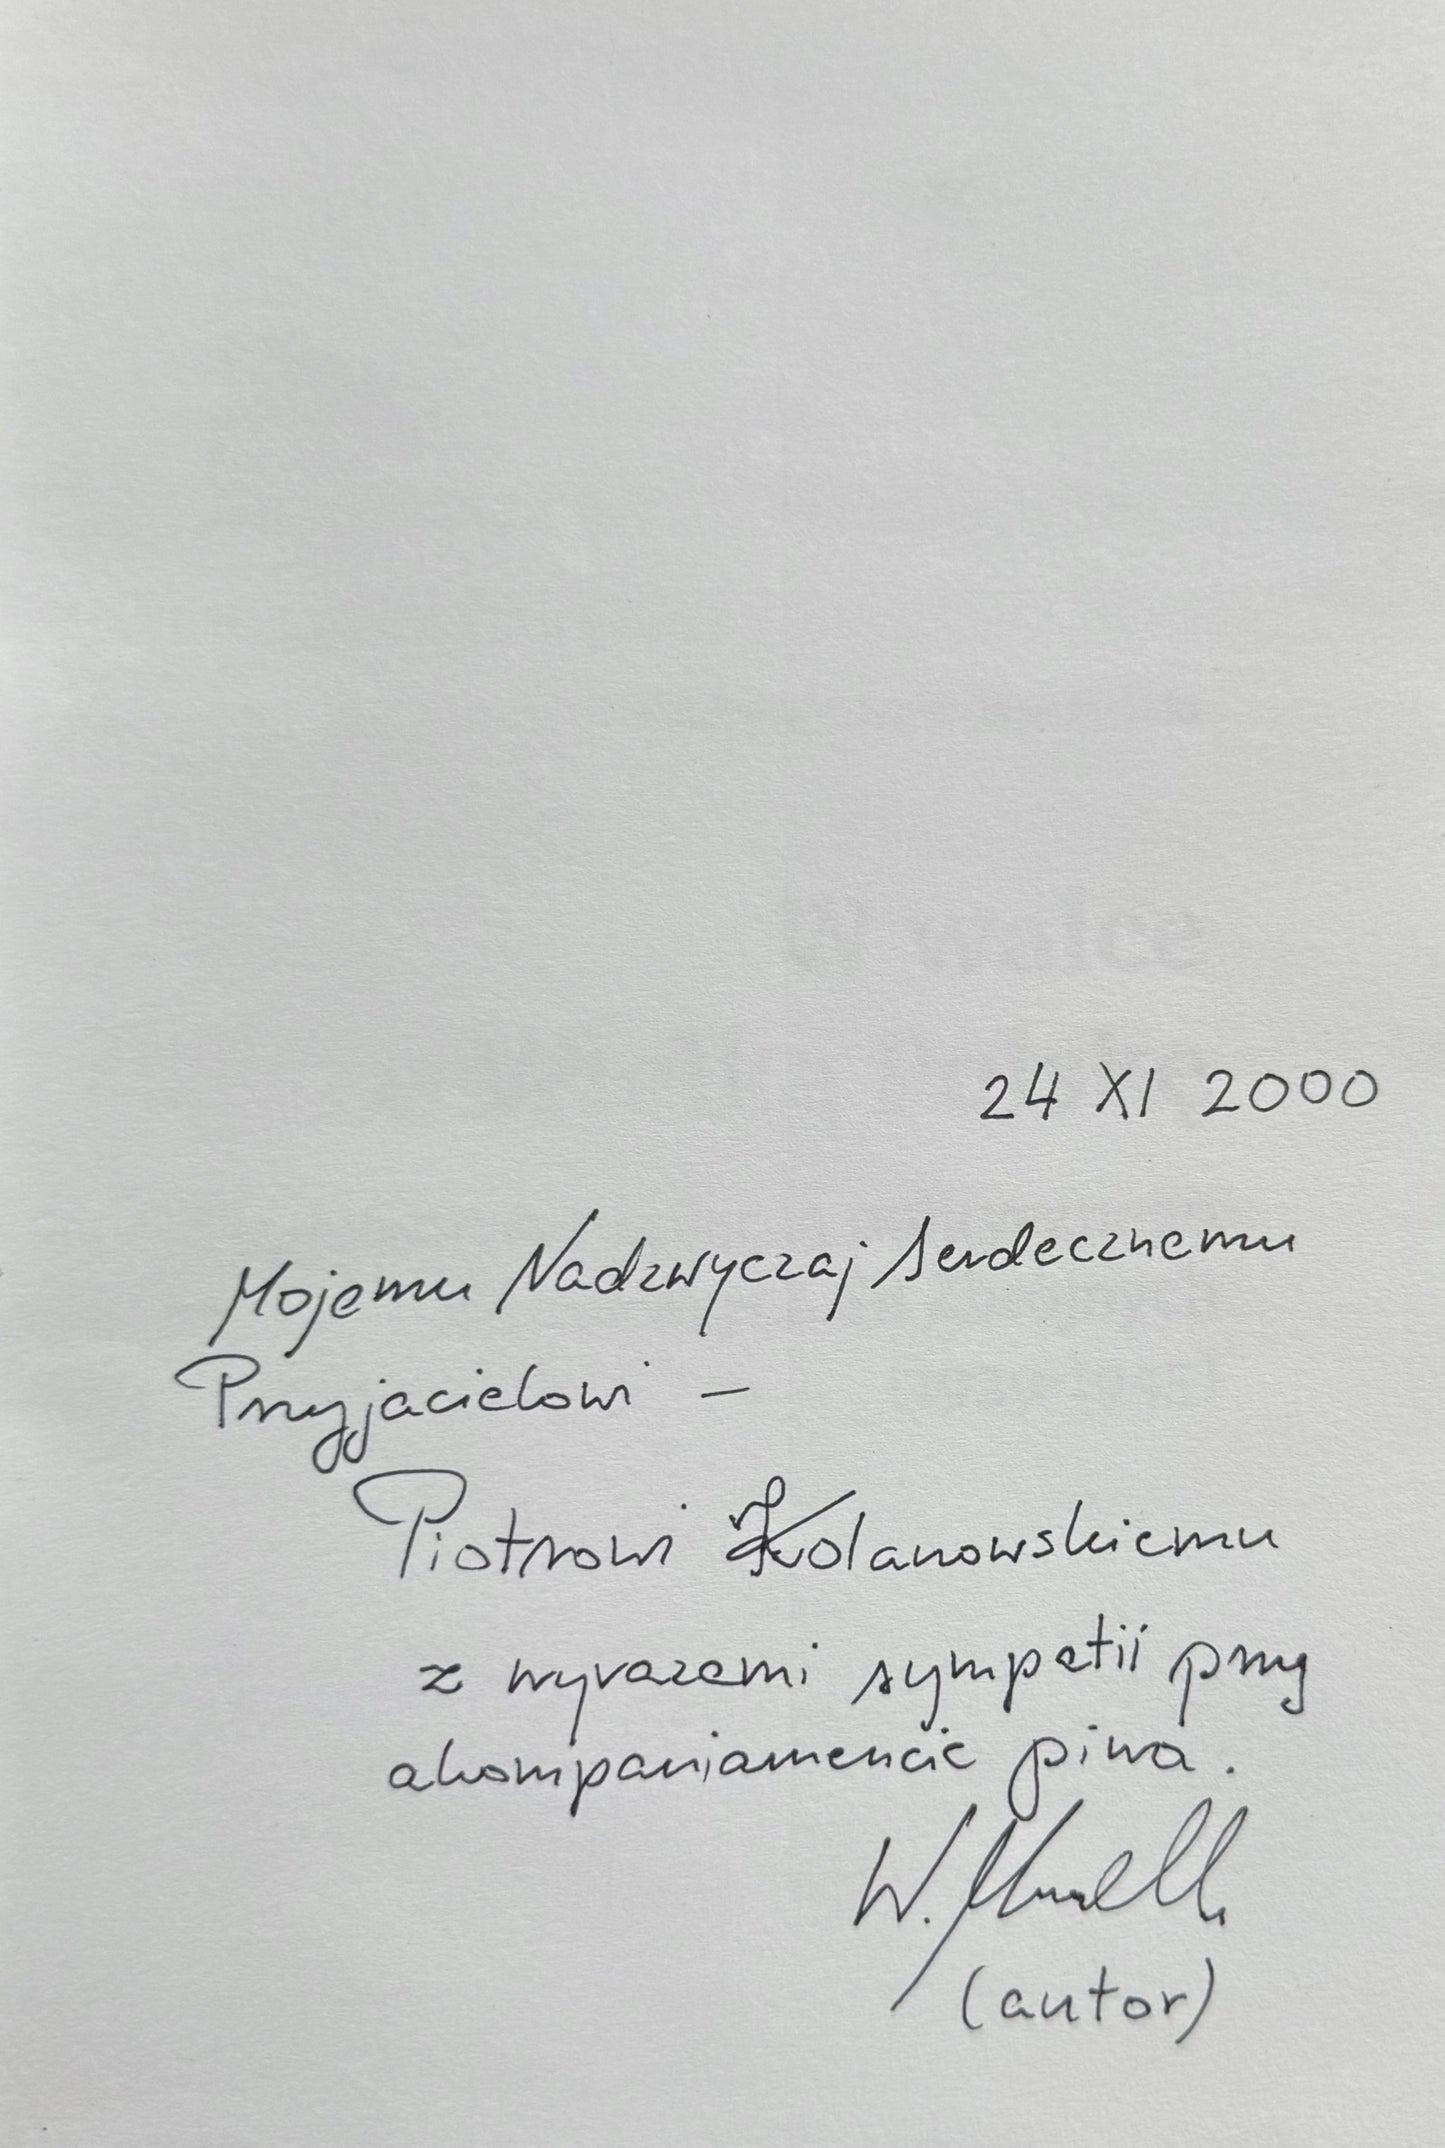 24 XI 2000
Mojemu Nadzwyczaj Serdecznemu
Przyjacielowi –
Piotrowi Kolanowskiemu
z wyrazami sympatii przy
akompaniamencie piwa.
W.
(autor)